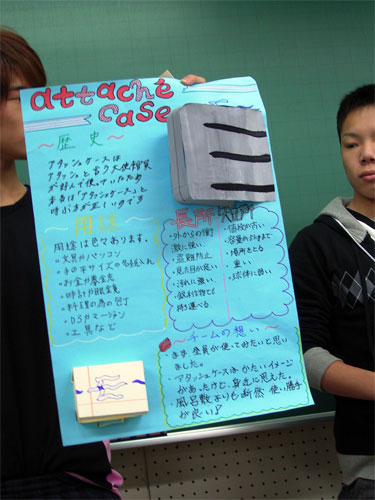 attaché
case
～歴史～
アタッシュケースは
アタッシュと言う大使館員
が好んで使っていたため
本当は「アタッシェケース」と
呼ぶのが正しいのです
用途
用途は色々あります。
・文具やパソコン
・手の平サイズの名刺入れ
・お金や貴金属
・時計や眼鏡
・料理の為の包丁
・DSやマージャン
・工具など
長所
・外からの衝
撃に強い
・盗難防止
・見た目が良い
・汚れに強い
・鋭利な物でも
持ち運べる
短所
・値段が高い
・容量の大きさまで
・場所をとる
・重い
・球体に弱い
～チームの想い～
・まず全員が使ってみたいと思い
ました。
・アタッシュケースはかたいイメージ
があったけど、身近に思えた。
・風呂敷よりも断然使い勝手
が良い!